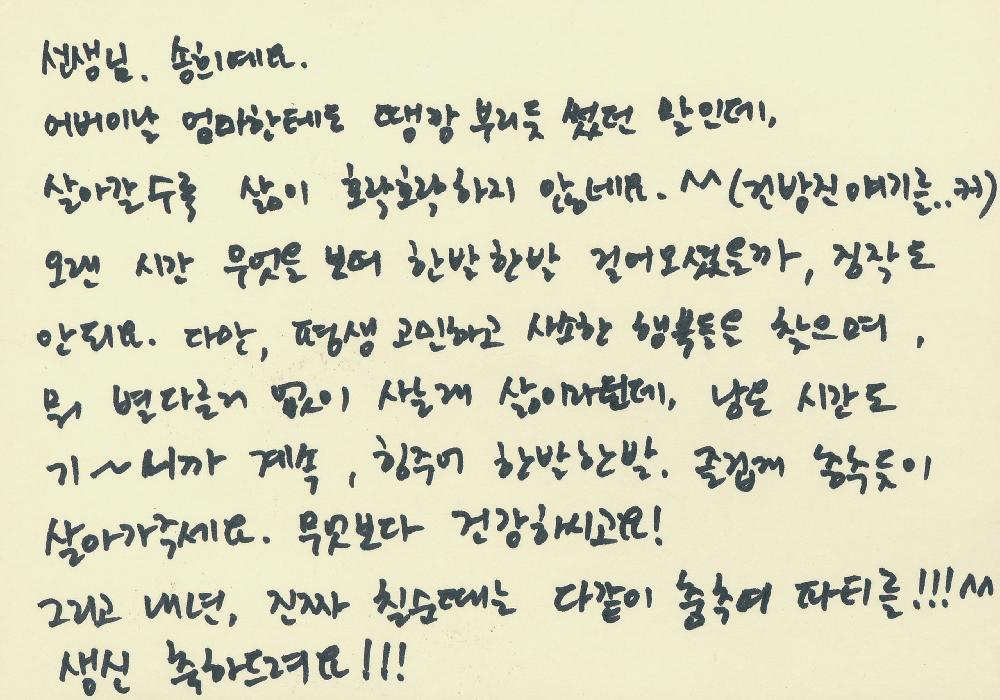 선생님. 송희예요.
어버이날 엄마한테도 땡깡 부리듯 썼던 말인데,
살아갈수록 삶이 호락호락하지 않네요. ^^ (건방진 얘기를..커)
오랜 시간 무엇을 보며 한발한발 걸어오셨을까, 짐작도
안되요. 다만, 평생 고민하고 사소한 행복들을 찾으며,
뭐 별다를거 없이 사는게 삶이라면데, 남은 시간도
기~니까 계속, 힘주어 한발한발. 즐겁게 춤추듯이
살아가주세요. 무엇보다 건강하시고요!
그리고 내년, 진짜 칠순때는 다같이 춤추며 파티를!!! ^^
생신 축하드려요!!!